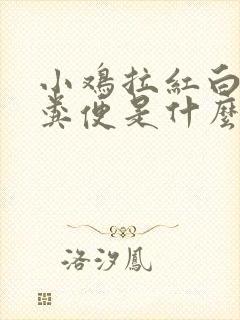 小鸡拉紅白
粪便是什麼
洛汐鳳